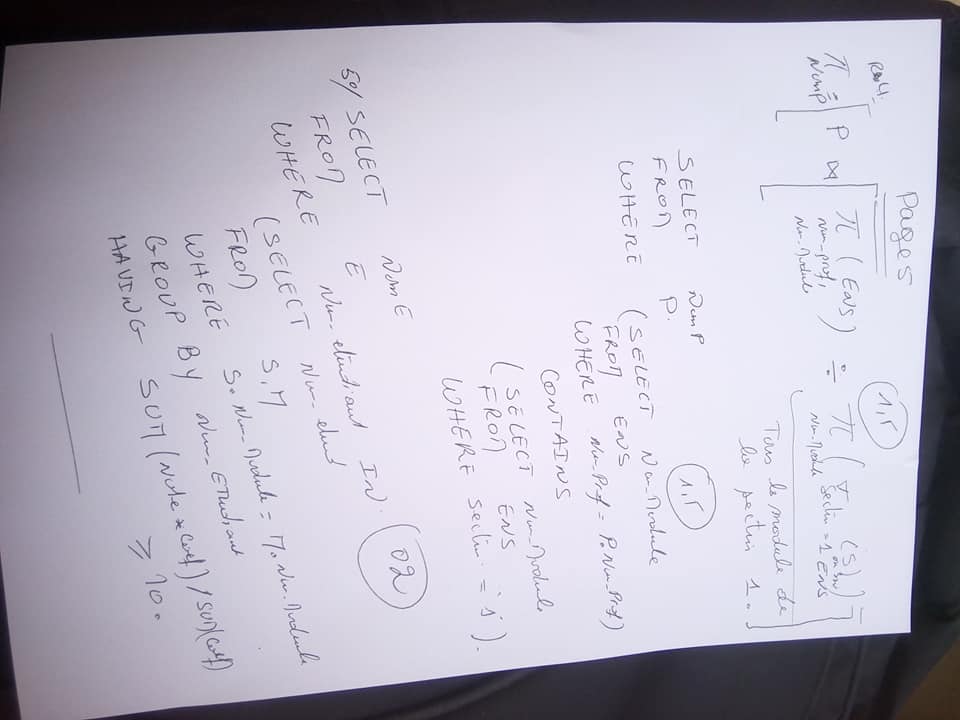 Page 5
1,5
π NumP [ P ⋈ [ π num-prof, Num-Module (ENS) ÷ π Num-Module ( σ Section = 1 (S) ENS
Tous le module de
la section 1.
SELECT NumP
FROM P.
WHERE (SELECT Num-Module
FROM ENS
WHERE Num-Prof = P.Num-Prof)
CONTAINS
(SELECT Num-Module
FROM ENS
WHERE Section = '1').
1,5
5°/ SELECT NomE
FROM E
WHERE Num-etudiant IN.
(SELECT Num-etud
FROM S,M
WHERE S.Num-Module = M.Num-Module
GROUP BY Num-Etudiant
HAVING SUM(Note*Coef)/SUM(Coef)
≥ 10.
02